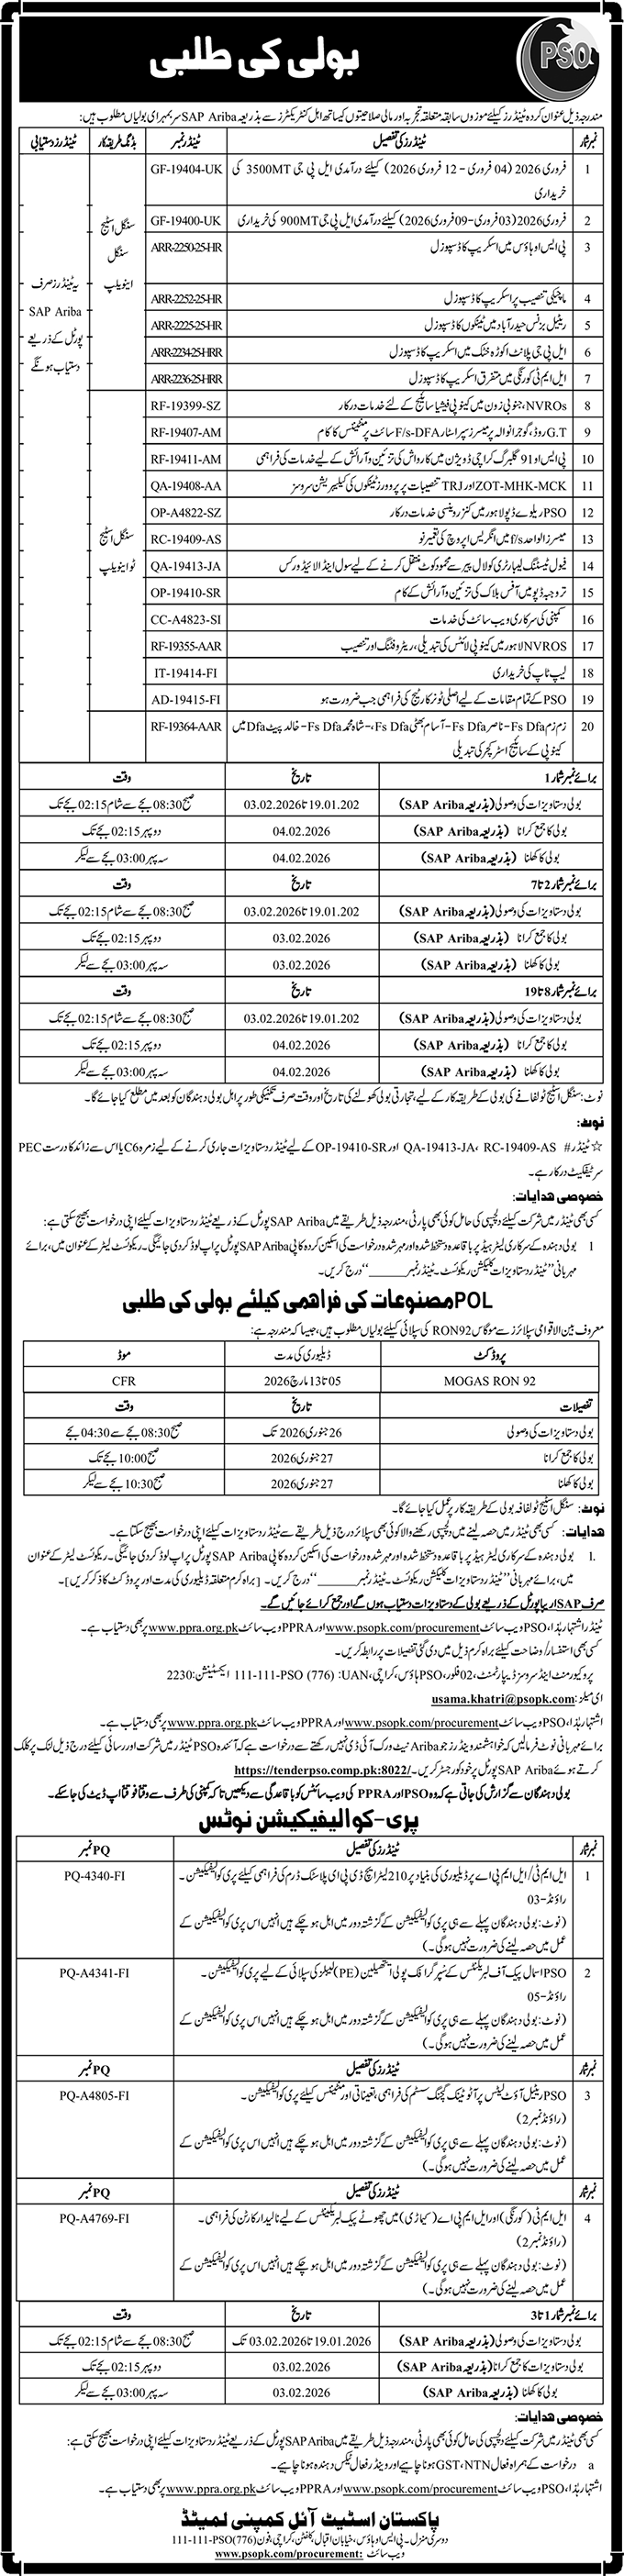 بولی کی طلبی
PSO
مندرجہ ذیل عنوان کردہ ٹینڈرز کیلئے موزوں سابقہ متعلقہ تجربہ اور مالی صلاحیتوں کیساتھ اہل کنٹریکٹرز سے بذریعہ SAP Ariba سربمہر ای بولیاں مطلوب ہیں:
نمبر شمار ٹینڈرز کی تفصیل ٹینڈر نمبر بڈنگ طریقہ کار ٹینڈرز دستیابی
1 فروری 2026 (04 فروری - 12 فروری 2026) کیلئے درآمدی ایل پی جی 3500MT کی خریداری GF-19404-UK
2 فروری 2026 (03 فروری-09 فروری 2026) کیلئے درآمدی ایل پی جی 900MT کی خریداری GF-19400-UK
3 پی ایس او ہاؤس میں اسکریپ کا ڈسپوزل ARR-2250-25-HR
4 ماچیکی تنصیب پر اسکریپ کا ڈسپوزل ARR-2252-25-HR
5 ریٹیل بزنس حیدرآباد میں ٹینکوں کا ڈسپوزل ARR-2225-25-HR
6 ایل پی جی پلانٹ اکوڑہ خٹک میں اسکریپ کا ڈسپوزل ARR-2234-25-HRR
7 ایل ایم ٹی کورنگی میں متفرق اسکریپ کا ڈسپوزل ARR-2236-25-HRR
سنگل اسٹیج
سنگل
اینویلپ
یہ ٹینڈرز صرف
SAP Ariba
پورٹل کے ذریعے
دستیاب ہونگے
8 NVROs، جنوبی زون میں کینوپی فیشیا سائیج کے لئے خدمات درکار RF-19399-SZ
9 G.T روڈ، گوجرانوالہ پر میسرز سپر اسٹار F/s-DFA سائٹ پر مینٹیننس کا کام RF-19407-AM
10 پی ایس او 91 گلبرگ کراچی ڈویژن میں کارواش کی تزئین و آرائش کے لیے خدمات کی فراہمی RF-19411-AM
11 ZOT-MHK-MCK اور TRJ تنصیبات پر پروور ٹینکوں کی کیلیبریشن سروسز QA-19408-AA
12 PSO ریلوے ڈپو لاہور میں کنزروینسی خدمات درکار OP-A4822-SZ
13 میسرز الواحد f/s میں انگریس اپروچ کی تعمیر نو RC-19409-AS
14 فیول ٹیسٹنگ لیبارٹری کو لال پیر سے محمود کوٹ منتقل کرنے کے لیے سول اینڈ الائیڈ ورکس QA-19413-JA
15 تروجبہ ڈپو میں آفس بلاک کی تزئین و آرائش کے کام OP-19410-SR
16 کمپنی کی سرکاری ویب سائٹ کی خدمات CC-A4823-SI
17 NVROS لاہور میں کینوپی لائٹس کی تبدیلی، ریٹروفٹنگ اور تنصیب RF-19355-AAR
18 لیپ ٹاپ کی خریداری IT-19414-FI
19 PSO کے تمام مقامات کے لیے اصلی ٹونر کارٹریج کی فراہمی جب ضرورت ہو AD-19415-FI
20 زم زم Fs Dfa- ناصر Fs Dfa- آسام بھٹی Fs Dfa،- شاہ محمد Fs Dfa- خالد پیٹ Dfa میں کینوپی کے سائیج اسٹرکچر کی تبدیلی RF-19364-AAR
سنگل اسٹیج
ٹو اینویلپ
برائے نمبر شمار 1 تاریخ وقت
بولی دستاویزات کی وصولی (بذریعہ SAP Ariba) 19.01.202 تا 03.02.2026 صبح 08:30 بجے سے شام 02:15 بجے تک
بولی کا جمع کرانا (بذریعہ SAP Ariba) 04.02.2026 دوپہر 02:15 بجے تک
بولی کا کھلنا (بذریعہ SAP Ariba) 04.02.2026 سہ پہر 03:00 بجے سے لیکر
برائے نمبر شمار 2 تا 7 تاریخ وقت
بولی دستاویزات کی وصولی (بذریعہ SAP Ariba) 19.01.202 تا 03.02.2026 صبح 08:30 بجے سے شام 02:15 بجے تک
بولی کا جمع کرانا (بذریعہ SAP Ariba) 03.02.2026 دوپہر 02:15 بجے تک
بولی کا کھلنا (بذریعہ SAP Ariba) 03.02.2026 سہ پہر 03:00 بجے سے لیکر
برائے نمبر شمار 8 تا 19 تاریخ وقت
بولی دستاویزات کی وصولی (بذریعہ SAP Ariba) 19.01.202 تا 03.02.2026 صبح 08:30 بجے سے شام 02:15 بجے تک
بولی کا جمع کرانا (بذریعہ SAP Ariba) 04.02.2026 دوپہر 02:15 بجے تک
بولی کا کھلنا (بذریعہ SAP Ariba) 04.02.2026 سہ پہر 03:00 بجے سے لیکر
نوٹ: سنگل اسٹیج ٹو لفافے کی بولی کے طریقہ کار کے لیے، تجارتی بولی کھولنے کی تاریخ اور وقت صرف تکنیکی طور پر اہل بولی دہندگان کو بعد میں مطلع کیا جائے گا۔
نوٹ:
☆ ٹینڈر # QA-19413-JA، RC-19409-AS اور OP-19410-SR کے لیے ٹینڈر دستاویزات جاری کرنے کے لیے زمرہ C6 یا اس سے زائد کا درست PEC
سرٹیفکیٹ درکار ہے۔
خصوصی ھدایات:
کسی بھی ٹینڈر میں شرکت کیلئے دلچسپی کی حامل کوئی بھی پارٹی، مندرجہ ذیل طریقے میں SAP Ariba پورٹل کے ذریعے ٹینڈر دستاویزات کیلئے اپنی درخواست بھیج سکتی ہے:
1 بولی دہندہ کے سرکاری لیٹر ہیڈ پر باقاعدہ دستخط شدہ اور مہر شدہ درخواست کی اسکین کردہ کاپی SAP Ariba پورٹل پر اپ لوڈ کردی جائیگی۔ ریکوئسٹ لیٹر کے عنوان میں، برائے
مہربانی ”ٹینڈر دستاویزات کلیکشن ریکوئسٹ۔ ٹینڈر نمبر______“ درج کریں۔
POL مصنوعات کی فراھمی کیلئے بولی کی طلبی
معروف بین الاقوامی سپلائرز سے موگاس RON92 کی سپلائی کیلئے بولیاں مطلوب ہیں، جیسا کہ مندرجہ ہے:
پروڈکٹ ڈیلیوری کی مدت موڈ
MOGAS RON 92 05 تا 13 مارچ 2026 CFR
تفصیلات تاریخ وقت
بولی دستاویزات کی وصولی 26 جنوری 2026 تک صبح 08:30 بجے سے 04:30 بجے
بولی کا جمع کرانا 27 جنوری 2026 صبح 10:00 بجے تک
بولی کا کھلنا 27 جنوری 2026 صبح 10:30 بجے سے لیکر
نوٹ: سنگل اسٹیج ٹو لفافہ بولی کے طریقہ کار پر عمل کیا جائے گا۔
ھدایات: کسی بھی ٹینڈر میں حصہ لینے میں دلچسپی رکھنے والا کوئی بھی سپلائر درج ذیل طریقے سے ٹینڈر دستاویزات کیلئے اپنی درخواست بھیج سکتا ہے۔
1. بولی دہندہ کے سرکاری لیٹر ہیڈ پر باقاعدہ دستخط شدہ اور مہر شدہ درخواست کی اسکین کردہ کاپی SAP Ariba پورٹل پر اپ لوڈ کردی جائیگی۔ ریکوئسٹ لیٹر کے عنوان
میں، برائے مہربانی ”ٹینڈر دستاویزات کلیکشن ریکوئسٹ۔ ٹینڈر نمبر______“ درج کریں۔ [براہ کرم متعلقہ ڈیلیوری کی مدت اور پروڈکٹ کا ذکر کریں]۔
صرف SAP اریبا پورٹل کے ذریعے بولی کے دستاویزات دستیاب ہوں گے اور جمع کرائے جائیں گے۔
ٹینڈر اشتہار ہذا، PSO ویب سائٹ www.psopk.com/procurement اور PPRA ویب سائٹ www.ppra.org.pk پر بھی دستیاب ہے۔
کسی بھی استفسار/ وضاحت کیلئے براہ کرم ذیل میں دی گئی تفصیلات پر رابطہ کریں۔
پروکیورمنٹ اینڈ سروسز ڈیپارٹمنٹ، 02 فلور، PSO ہاؤس، کراچی، UAN: 111-111-PSO (776) ایکسٹینشن: 2230
ای میلز: usama.khatri@psopk.com
اشتہار ہذا، PSO ویب سائٹ www.psopk.com/procurement اور PPRA ویب سائٹ www.ppra.org.pk پر بھی دستیاب ہے۔
برائے مہربانی نوٹ فرمالیں کہ خواہشمند وینڈرز جو Ariba نیٹ ورک آئی ڈی نہیں رکھتے سے درخواست ہے کہ آئندہ PSO ٹینڈر میں شرکت اور رسائی کیلئے درج ذیل لنک پر کلک
کرتے ہوئے SAP Ariba پورٹل پر خود کو رجسٹر کریں۔ https://tenderpso.comp.pk:8022/
بولی دہندگان سے گزارش کی جاتی ہے کہ وہ PSO اور PPRA کی ویب سائٹس کو باقاعدگی سے دیکھیں تاکہ کمپنی کی طرف سے وقتاً فوقتاً اپ ڈیٹ کی جاسکے۔
پری-کوالیفیکیشن نوٹس
نمبر شمار ٹینڈرز کی تفصیل PQ نمبر
1 ایل ایم ٹی/ ایل ایم پی اے پر ڈیلیوری کی بنیاد پر 210 لیٹر ایچ ڈی پی ای پلاسٹک ڈرم کی فراہمی کیلئے پری کوالیفیکیشن۔ PQ-4340-FI
راؤنڈ-03
(نوٹ: بولی دہندگان پہلے سے ہی پری کوالیفیکیشن کے گزشتہ دور میں اہل ہو چکے ہیں انہیں اس پری کوالیفیکیشن کے
عمل میں حصہ لینے کی ضرورت نہیں ہوگی۔)
2 PSO اسمال پیک آف لبریکنٹس کے سُپر گرافک پولی ایتھیلین (PE) لیبلز کی سپلائی کے لیے پری کوالیفیکیشن۔ PQ-A4341-FI
راؤنڈ-05
(نوٹ: بولی دہندگان پہلے سے ہی پری کوالیفیکیشن کے گزشتہ دور میں اہل ہو چکے ہیں انہیں اس پری کوالیفیکیشن کے
عمل میں حصہ لینے کی ضرورت نہیں ہوگی۔)
نمبر شمار ٹینڈرز کی تفصیل PQ نمبر
3 PSO ریٹیل آؤٹ لیٹس پر آٹومیٹک گیجنگ سسٹم کی فراہمی، تعیناتی اور مینٹیننس کیلئے پری کوالیفیکیشن۔ PQ-A4805-FI
(راؤنڈ نمبر 2)
(نوٹ: بولی دہندگان پہلے سے ہی پری کوالیفیکیشن کے گزشتہ دور میں اہل ہو چکے ہیں انہیں اس پری کوالیفیکیشن کے
عمل میں حصہ لینے کی ضرورت نہیں ہوگی۔)
نمبر شمار ٹینڈرز کی تفصیل PQ نمبر
4 ایل ایم ٹی (کورنگی) اور ایل ایم پی اے (کیماڑی) میں چھوٹے پیک لبریکینٹس کے لیے نالیدار کارٹن کی فراہمی۔ PQ-A4769-FI
(راؤنڈ نمبر 2)
(نوٹ: بولی دہندگان پہلے سے ہی پری کوالیفیکیشن کے گزشتہ دور میں اہل ہو چکے ہیں انہیں اس پری کوالیفیکیشن کے
عمل میں حصہ لینے کی ضرورت نہیں ہوگی۔)
برائے نمبر شمار 1 تا 3 تاریخ وقت
بولی دستاویزات کی وصولی (بذریعہ SAP Ariba) 19.01.2026 تا 03.02.2026 تک 08:30 بجے سے شام 02:15 بجے تک
بولی دستاویزات کا جمع کرانا (بذریعہ SAP Ariba) 03.02.2026 دوپہر 02:15 بجے تک
بولی کا کھلنا (بذریعہ SAP Ariba) 03.02.2026 سہ پہر 03:00 بجے سے لیکر
خصوصی ھدایات:
کسی بھی ٹینڈر میں شرکت کیلئے دلچسپی کی حامل کوئی بھی پارٹی، مندرجہ ذیل طریقے میں SAP Ariba پورٹل کے ذریعے ٹینڈر دستاویزات کیلئے اپنی درخواست بھیج سکتی ہے:
a درخواست کے ہمراہ فعال GST، NTN ہونا چاہیے اور وینڈر فعال ٹیکس دہندہ ہونا چاہیے۔
اشتہار ہذا، PSO ویب سائٹ www.psopk.com/procurement اور PPRA ویب سائٹ www.ppra.org.pk پر بھی دستیاب ہے۔
پاکستان اسٹیٹ آئل کمپنی لمیٹڈ
دوسری منزل۔ پی ایس او ہاؤس، خیابان اقبال، کلفٹن، کراچی، فون 111-111-PSO(776)
ویب سائٹ :www.psopk.com/procurement